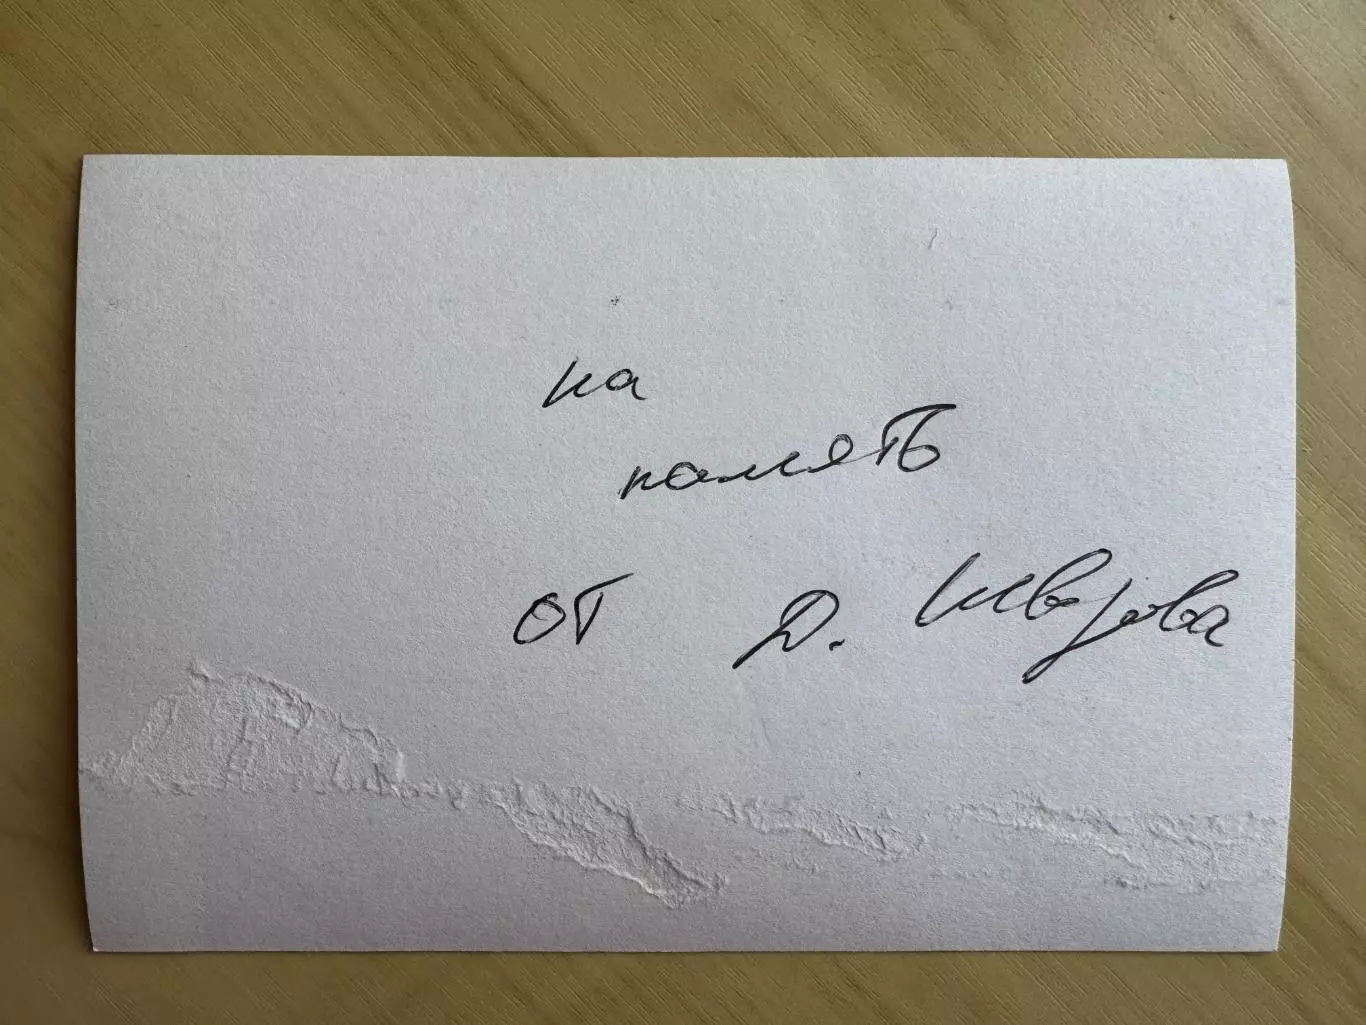 на
память
от Д. Шварова